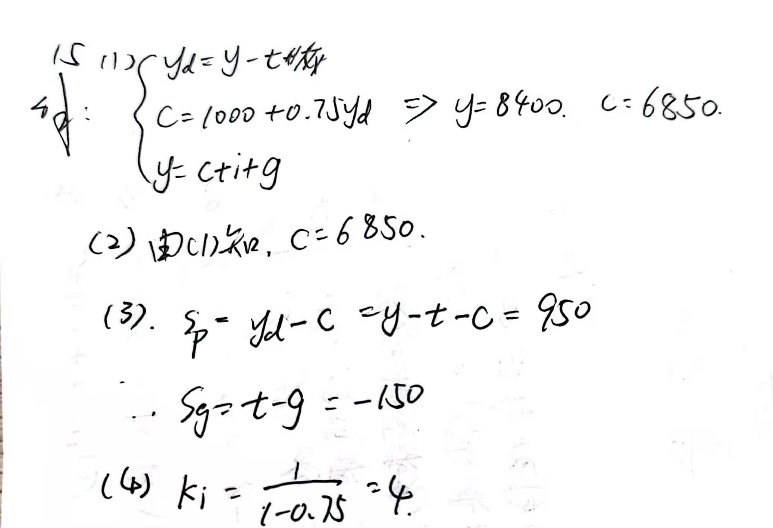 15 (1) { yd = y - t
C = 1000 + 0.75yd => y = 8400. C = 6850.
y = c + i + g
(2) 由(1)知, C = 6850.
(3). Sp = yd - C = y - t - C = 950
∴ Sg = t - g = -150
(4) ki = 1/(1-0.75) = 4.